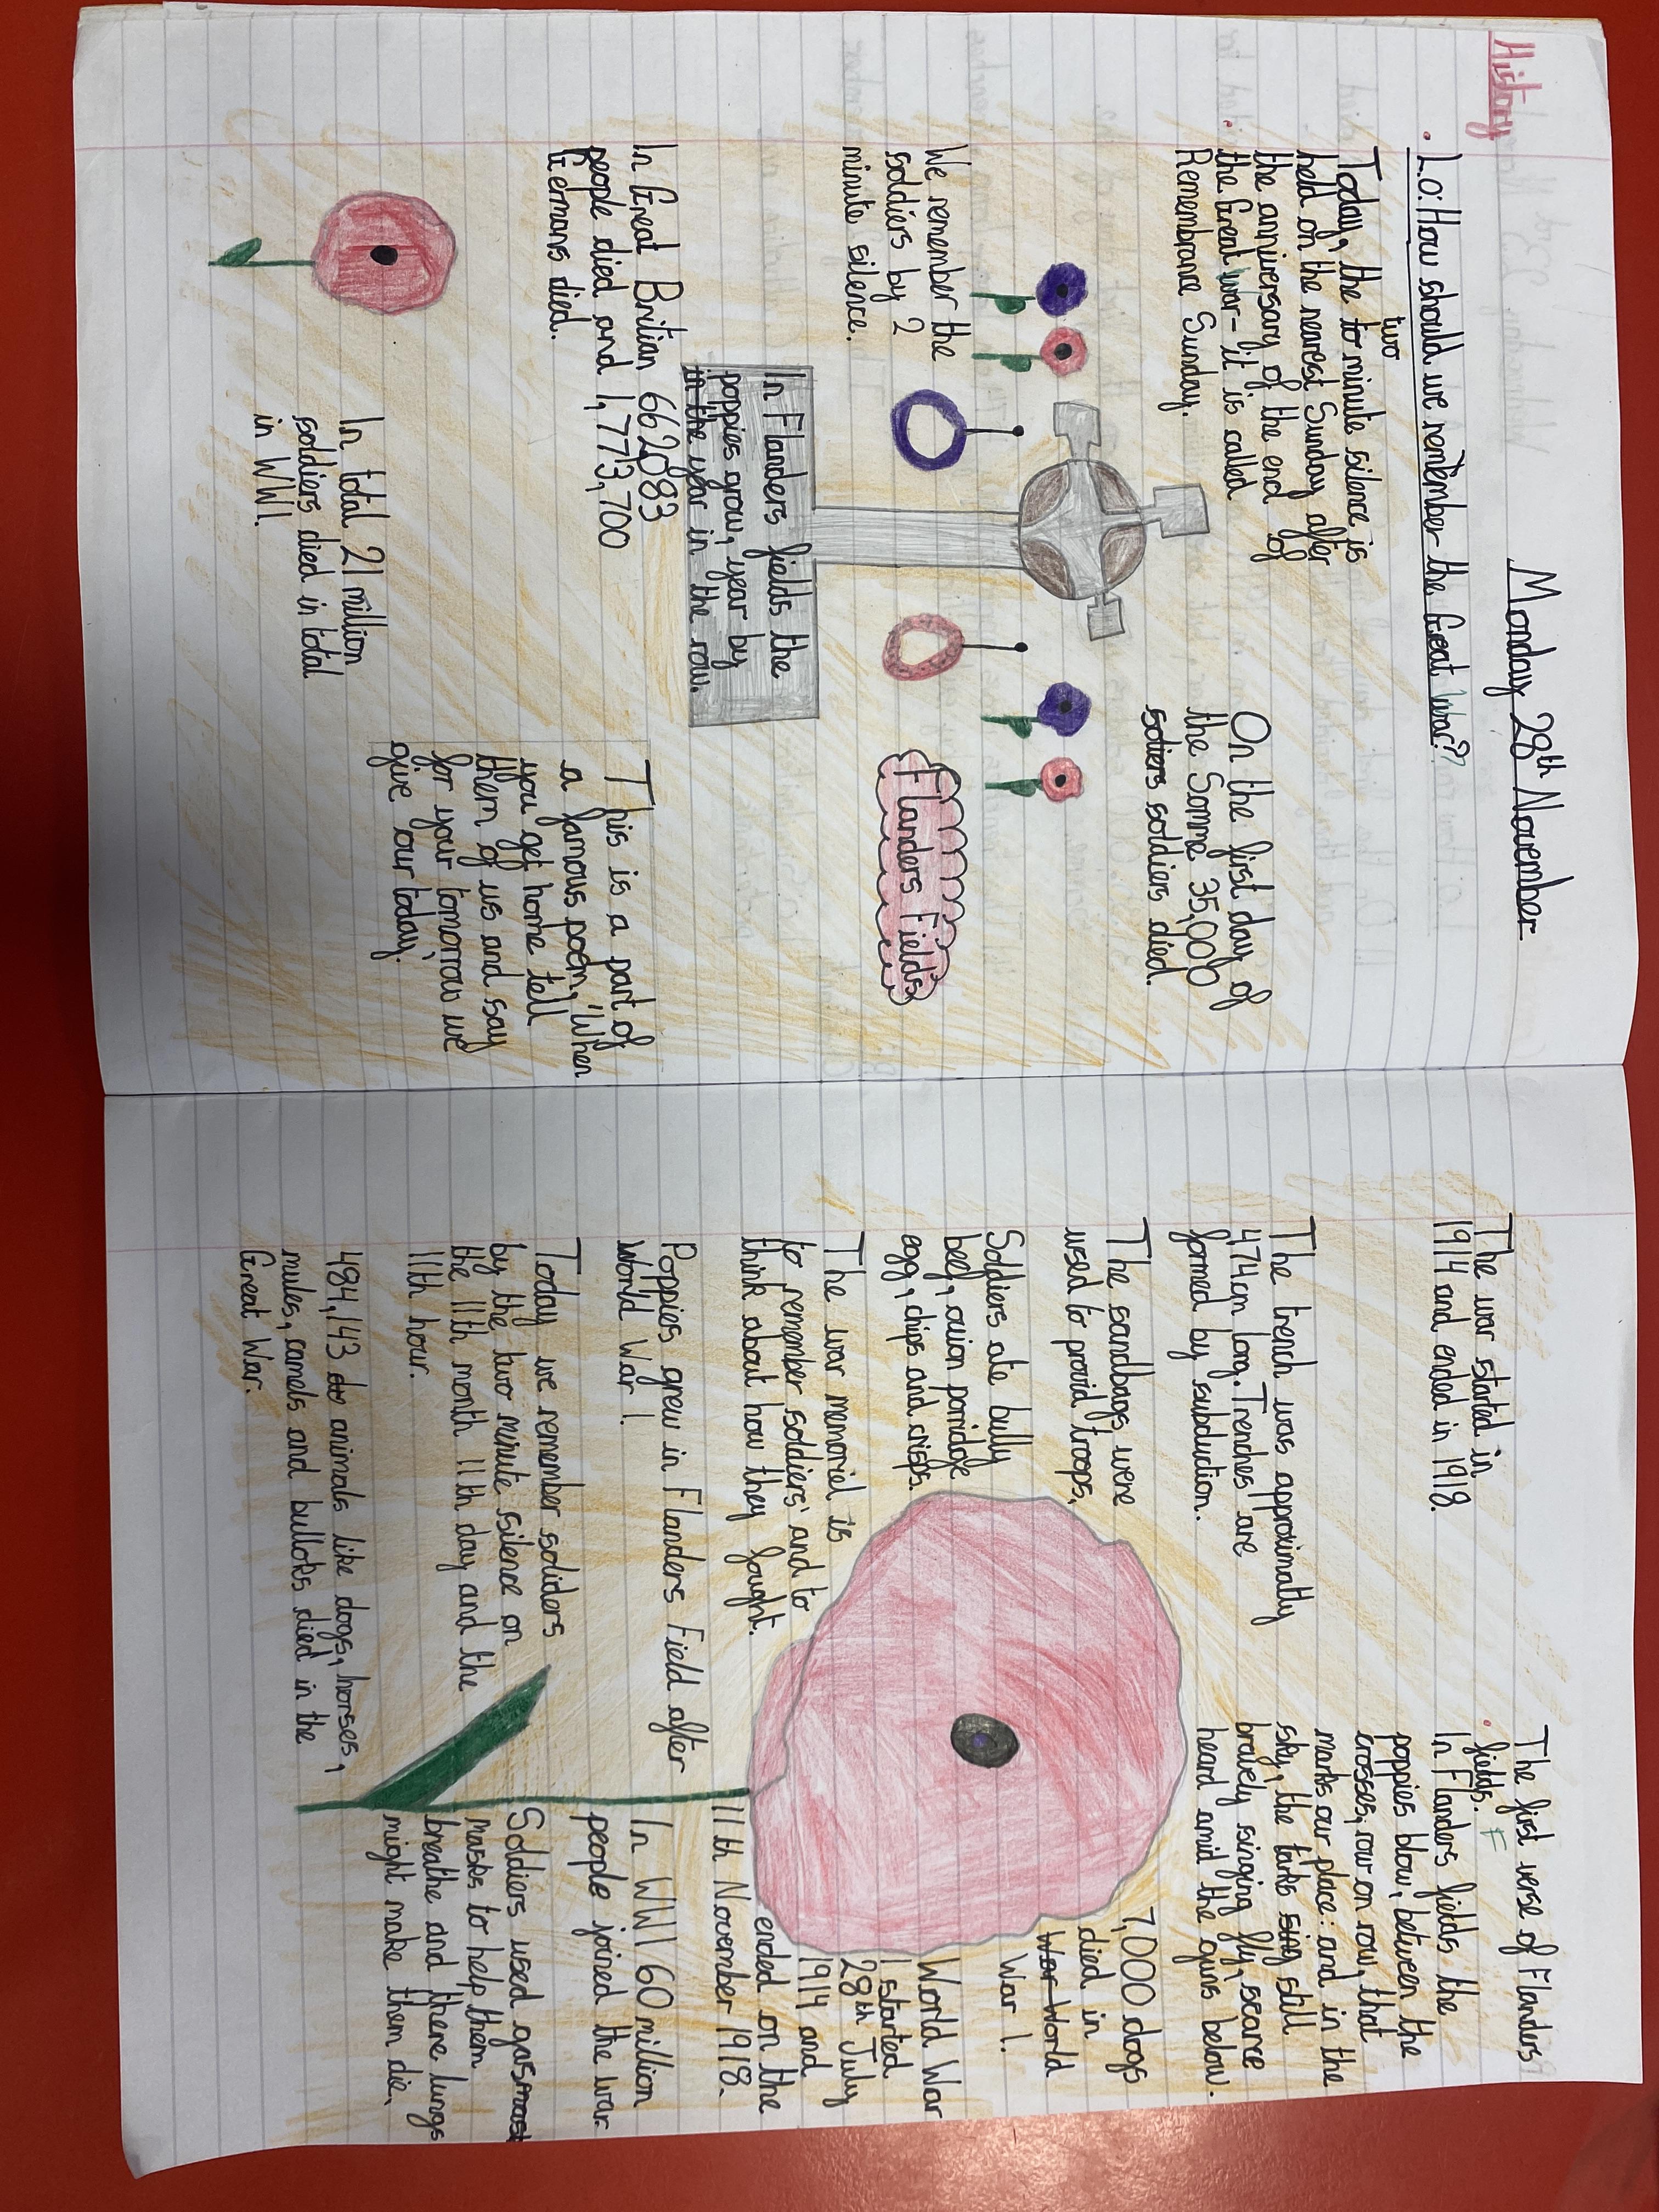 History
Monday 28th November
L.o: How should we remember the Great War?
two
Today, the to minute silence is
held on the nearest Sunday after
the anniversary of the end of
the Great War - it is called
Remembrance Sunday.
On the first day of
the Somme 35,000
sodiers soldiers died.
We remember the
soldiers by 2
minute silence.
Flanders Fields
In Flanders fields the
poppies grow, year by
in the year in the row.
In Great Britian 662,083
people died and 1,773,700
Germans died.
This is a part of
a famous poem, 'When
you get home tell
them of us and say
for your tomorrow we
give our today.'
In total 21 million
soldiers died in total
in WW1.
The war started in
1914 and ended in 1918.
The trench was approximatly
474km long. Trenches' are
formed by subduction.
The sandbags were
used to provid troops.
Soldiers ate bully
beef, onion porridge
egg, chips and crisps.
The war memoriel is
to remember soldiers' and to
think about how they fought.
Poppies grew in Flanders Field after
World War 1
Today we remember soliders
by the two minute silence on
the 11th month 11th day and the
11th hour.
484,143 do animals like dogs, horses,
mules, camels and bulloks died in the
Great War.
The first verse of Flanders
fields. F
In Flanders fields the
poppies blow, between the
crosses, row on row, that
marks our place: and in the
sky, the larks sing still
bravely singing fly, scarce
heard amid the guns below.
7,000 dogs
died in
War World
War 1.
World War
1 started
28th July
1914 and
ended on the
11th November 1918.
In WW1 60 million
people joined the war.
Soldiers used gas
masks to help them
breathe and there lungs
might make them die.